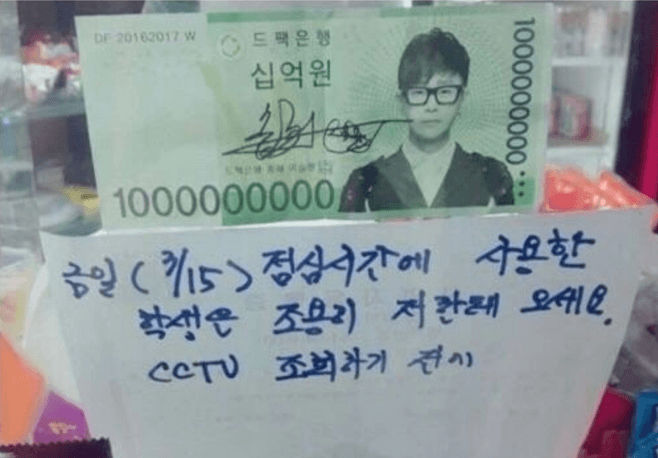 DF 20162017 W
드팩은행
십억원
1000000000
1000000000
금일 (3/15) 점심시간에 사용한
학생은 조용히 저한테 오세요.
CCTV 조회하기 전에